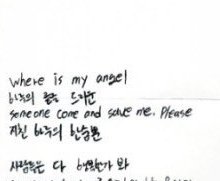 where is my angel
하루의 끝을 드리운
someone come and save me, Please
지친 하루의 한숨뿐
사람들은 다 행복한가 와